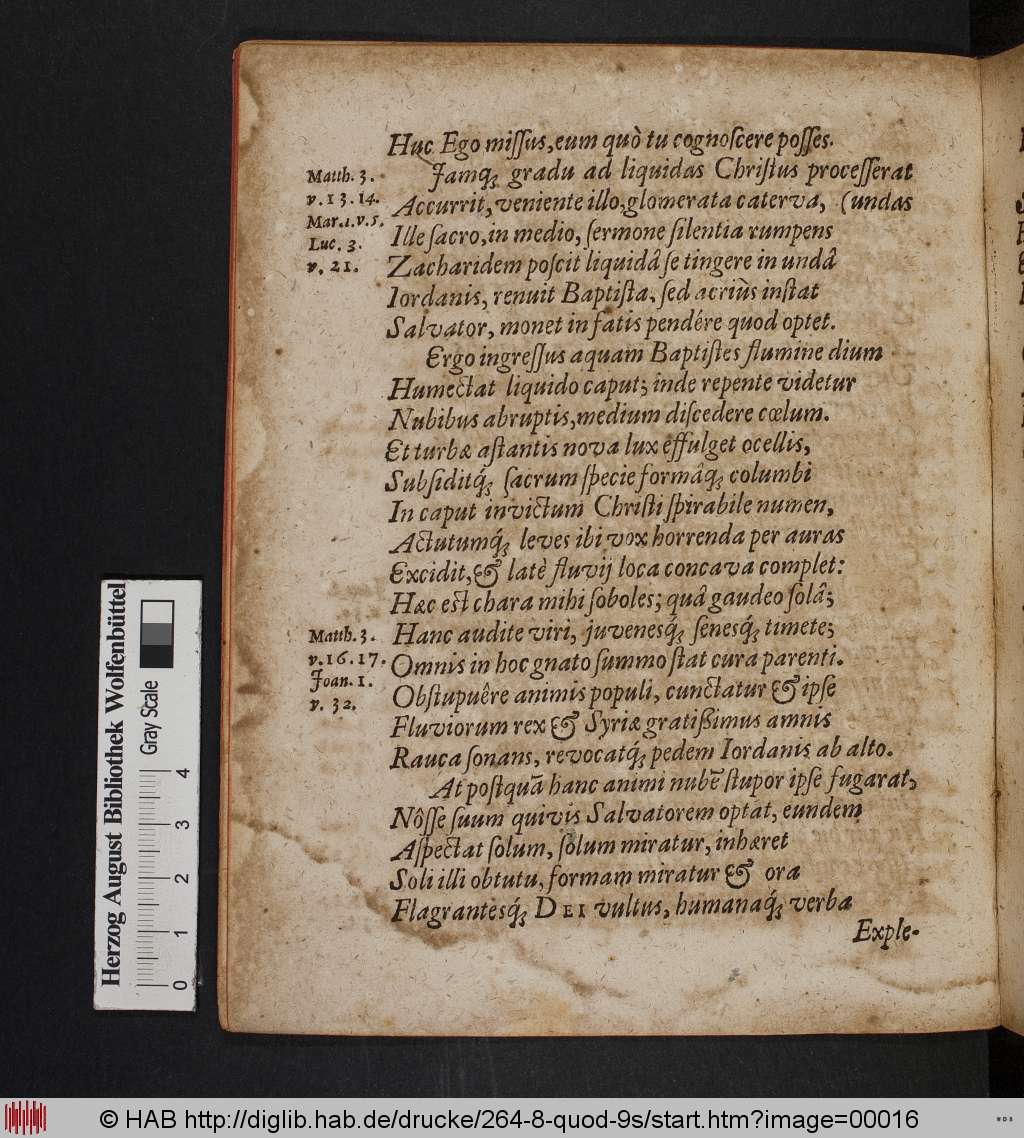 Huc Ego miſſus, eum quò tu cognoſcere poſſes.
Jamq́; gradu ad liquidas Chriſtus proceſſerat
Accurrit, veniente illo, glomerata caterva, (undas
Ille ſacro, in medio, ſermone ſilentia rumpens
Zacharidem poſcit liquidâ ſe tingere in undâ
Iordanis, renuit Baptiſta, ſed acriùs inſtat
Salvator, monet in fatis pendére quod optet.
Ergo ingreſſus aquam Baptiſtes flumine dium
Humectat liquido caput; inde repente videtur
Nubibus abruptis, medium diſcedere cœlum.
Et turbæ aſtantis nova lux effulget ocellis,
Subſiditq́; ſacrum ſpecie formâq́; columbi
In caput invictum Chriſti ſpirabile numen,
Actutumq́; leves ibi vox horrenda per auras
Excidit, & latè fluvij loca concava complet:
Hæc est chara mihi ſoboles; quâ gaudeo ſolâ;
Hanc audite viri, juvenesq́; ſenesq́; timete;
Omnis in hoc gnato ſummo ſtat cura parenti.
Obſtupuêre animis populi, cunctatur & ipſe
Fluviorum rex & Syriæ gratißimus amnis
Rauca ſonans, revocatq́; pedem Iordanis ab alto.
At poſtquā hanc animi nubē ſtupor ipſe fugarat,
Nôſſe ſuum quivis Salvatorem optat, eundem
Aſpectat ſolum, ſolum miratur, inhæret
Soli illi obtutu, formam miratur & ora
Flagrantesq́; DEI vultus, humanaq́; verba
Exple-
Matth. 3.
v. 13. 14.
Mar. 1. v. 5.
Luc. 3.
v. 21.
Matth. 3.
v. 16. 17.
Joan. 1.
v. 32.
Herzog August Bibliothek Wolfenbüttel
Gray Scale
0 1 2 3 4
© HAB http://diglib.hab.de/drucke/264-8-quod-9s/start.htm?image=00016